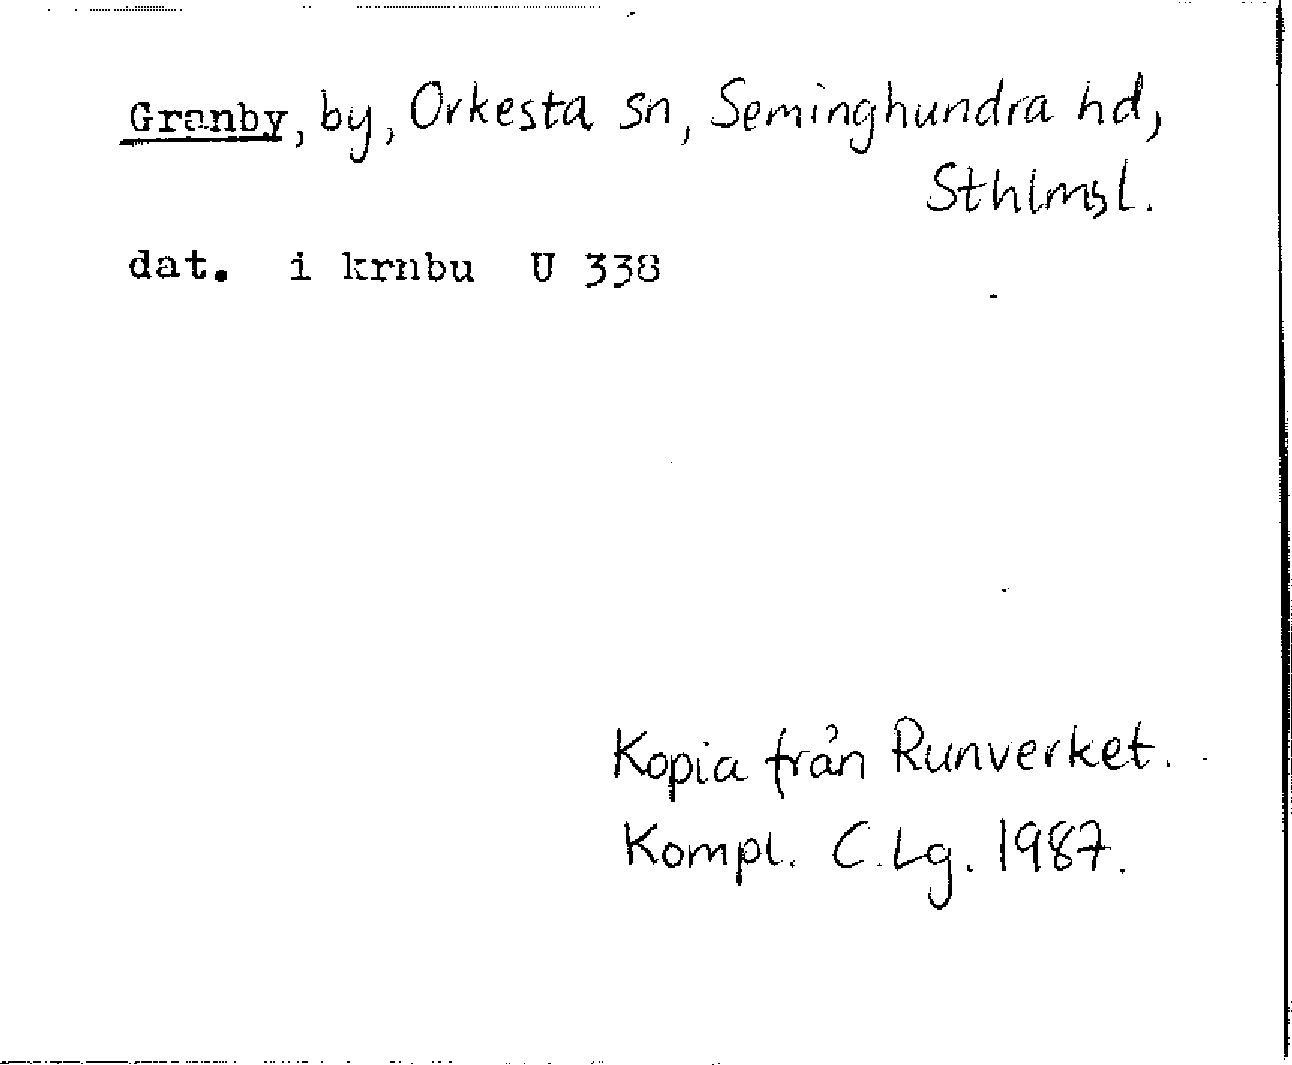 Granby, by, Orkesta sn, Seminghundra hd,
Sthlmsl.
dat. i krnbu U 338
Kopia från Runverket.
Kompl. C.Lg. 1987.